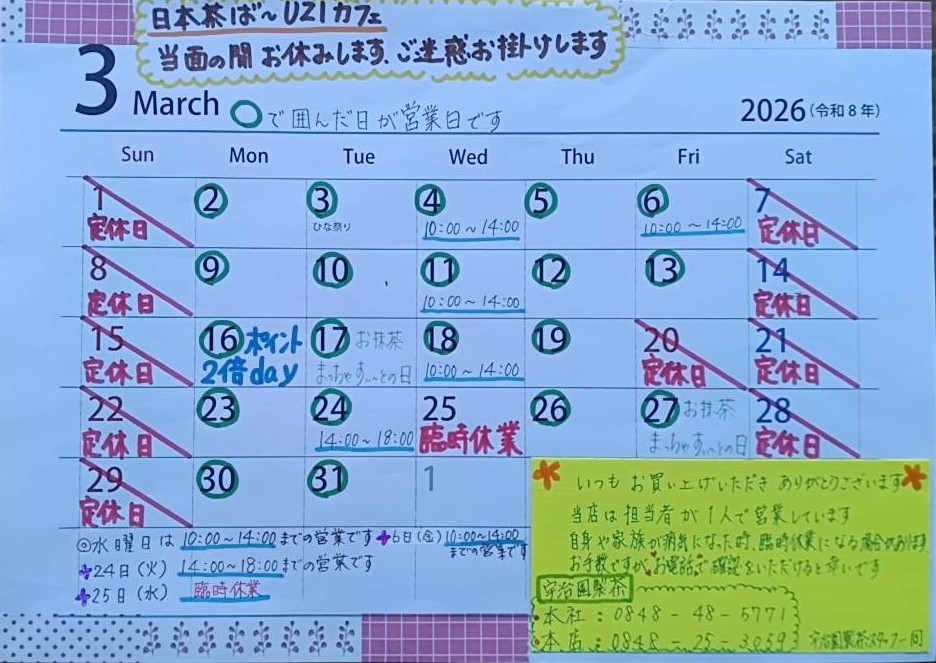 日本茶ば～UZIカフェ
当面の間 お休みします、ご迷惑お掛けします
3 March ○で囲んだ日が営業日です 2026(令和8年)
Sun Mon Tue Wed Thu Fri Sat
1 2 3 4 5 6 7
定休日 ひな祭り 10:00～14:00 10:00～14:00 定休日
8 9 10 11 12 13 14
定休日 10:00～14:00 定休日
15 16 ポイント 17 お抹茶 18 19 20 21
定休日 2倍day まっちゃすぃ～との日 10:00～14:00 定休日 定休日
22 23 24 25 26 27 お抹茶 28
定休日 14:00～18:00 臨時休業 まっちゃすぃ～との日 定休日
29 30 31 1
定休日
◎水曜日は 10:00～14:00 までの営業です
6日(金) 10:00～14:00
までの営業です
24日(火) 14:00～18:00までの営業です
25日(水) 臨時休業
いつも お買い上げいただき ありがとうございます
当店は 担当者が 1人で営業しています
自身や家族が病気になった時、臨時休業になる場合があります
お手数ですが、お電話で確認をいただけると幸いです
宇治園製茶
本社：0848-48-5771
本店：0848-25-3059
宇治園製茶スタッフ一同